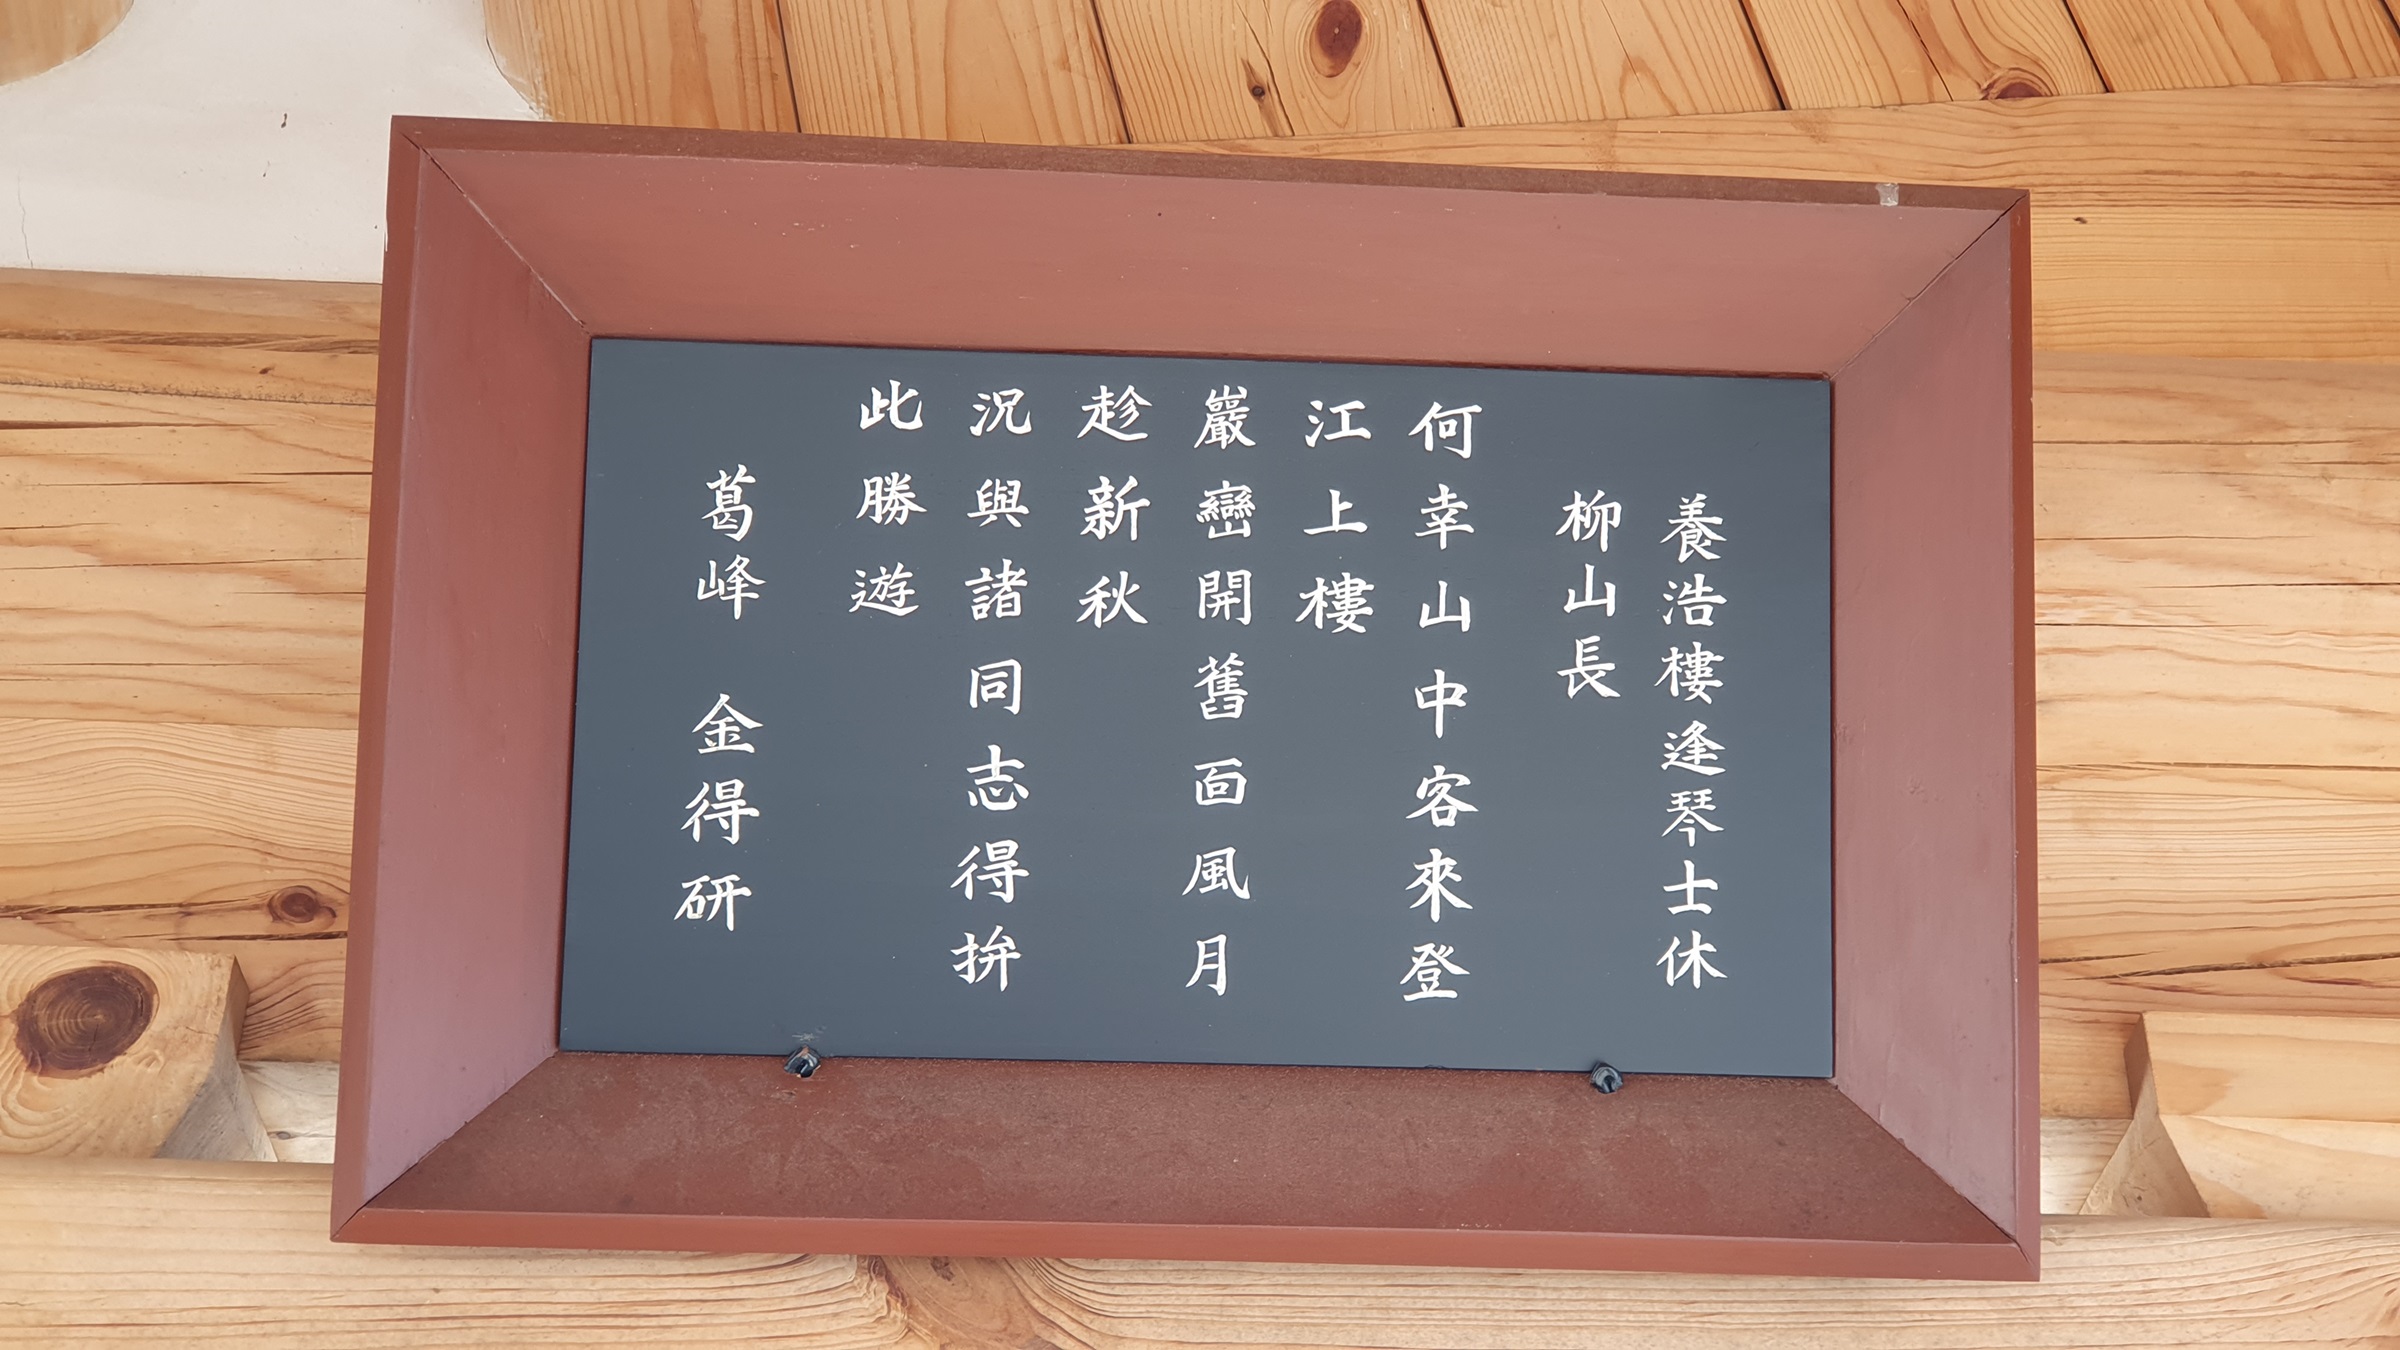 養浩樓逢琴士休
柳山長
何幸山中客來登
江上樓
巖巒開舊面風月
趁新秋
況與諸同志得拚
此勝遊
葛峰 金得研